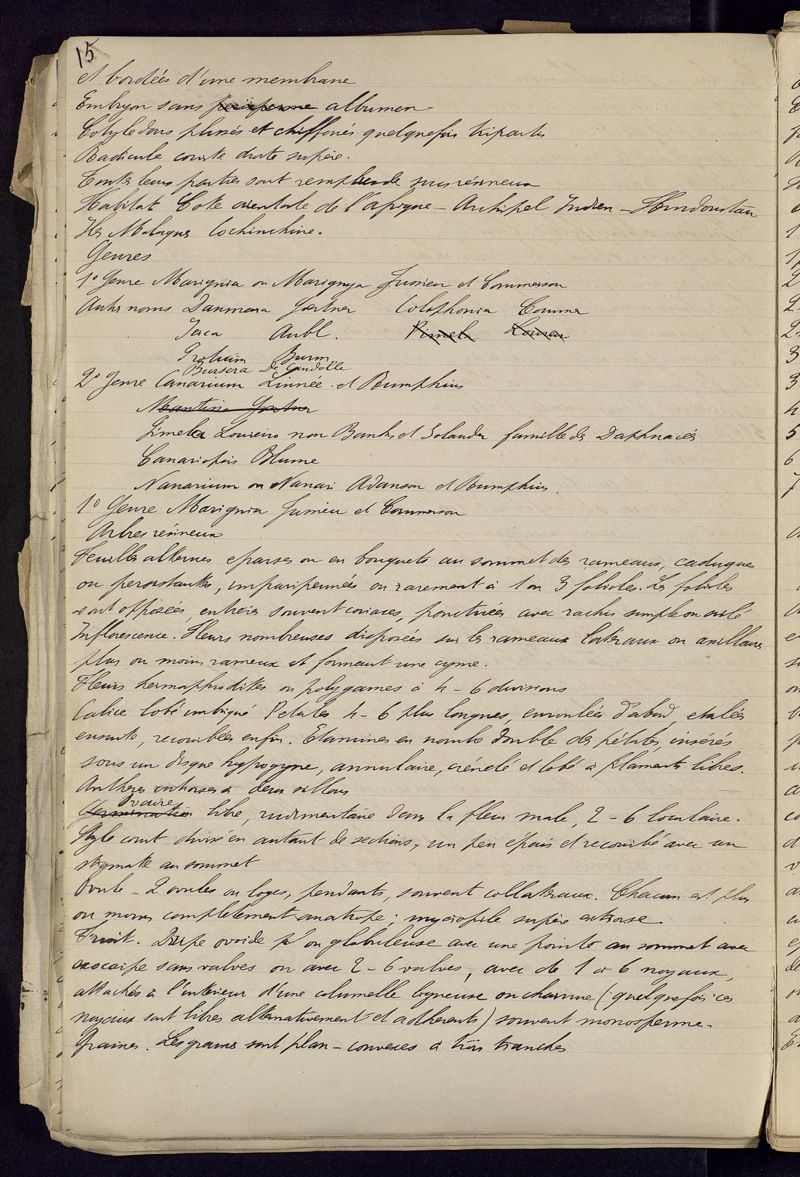 15
et bordées d'une membrane
Embryon sans perisperme albumen
Cotyledons plissés et chiffonés quelquefois tripartis
Radicule courte droite supère.
Toutes leurs parties sont remplies de sucs résineux
Habitat Cote orientale de l'afrique - Archipel Indien - Hindoustan
Iles Moluques Cochinchine.
Genres
1° Genre Marignia ou Marignya Jussieu et Commerson
Autres noms Dammara Gærtner Colophonia Commer
Icica Aubl. Pimela Loureiro
Protium Burm
Bursera De Candolle
2° Genre Canarium Linnée et Rumphius
Gærtner
Pimela Loureiro non Banks et Solander famille des Daphnacés
Canariopsis Blume
Nanarium ou Nanari Adanson et Rumphius.
1° Genre Marignia Jussieu et Commerson
Arbres résineux
Feuilles alternes eparses ou en bouquets au sommet des rameaux, caduques
ou persistantes, imparipennées ou rarement à 1 ou 3 folioles. Les folioles
sont opposées, entières souvent coriaces, ponctuées avec rachis simple ou
Inflorescence. Fleurs nombreuses disposées sur les rameaux lateraux ou axillaires
plus ou moins rameux et formant une cyme.
Fleurs hermaphrodites ou polygames à 4 - 6 divisions
Calice lobé imbriqué Petales 4 - 6 plus longues, enroulées d'abord, etalées
ensuite, recourbées enfin. Etamines en nombre double des pétales, insérés
sous un disque hypogyne, annulaire, crénelé et lobé à filaments libres.
Anthères introrses à deux sillons
Ovaire
libre, rudimentaire dans la fleur male, 2 - 6 loculaire.
Style court divisé en autant de sections, un peu épais et recourbé avec un
stigmate au sommet
Ovule - 2 ovules ou loges, pendants, souvent collateraux. Chacun est plus
ou moins complètement anatrope : mycropile supère extrorse.
Fruit. Drupe ovoide ou globuleuse avec une pointe au sommet avec
exocarpe sans valves ou avec 2 - 6 valves, avec de 1 à 6 noyaux,
attachés à l'intérieur d'une columelle ligneuse ou charnue (quelquefois ces
noyaux sont libres alternativement et adherents) souvent monosperme.
Graines. Les graines sont plan - convexes à trois tranches